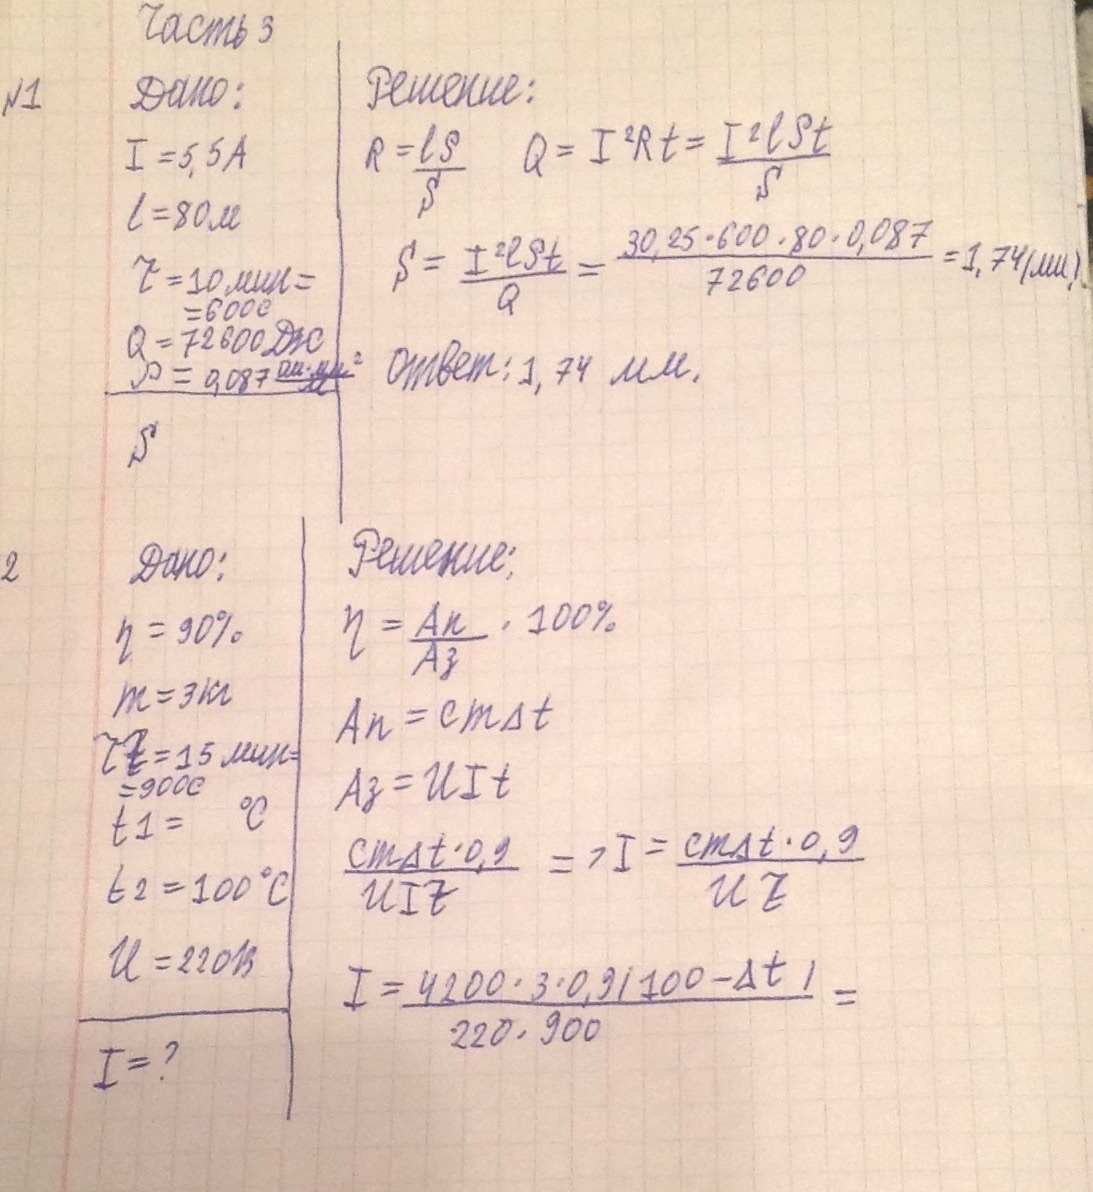 Часть 3
№1
Дано:
I = 5,5А
l = 80м
τ = 10 мин =
= 600с
Q = 72600 Дж
ρ = 0,087 Ом·мм²/м
S
Решение:
R = lρ/S Q = I²Rt = I²lρt/S
S = I²lρt/Q = 30,25·600·80·0,087/72600 = 1,74(мм)
Ответ: 1,74 мм.
2
Дано:
η = 90%
m = 3 кг
τ = 15 мин =
= 900с
t1 = °C
t2 = 100°C
U = 220В
I = ?
Решение:
η = Aп/Aз · 100%
Aп = cmΔt
Aз = UIt
cmΔt·0,9/UIτ => I = cmΔt·0,9/Uτ
I = 4200·3·0,9(100-Δt)/220·900 =